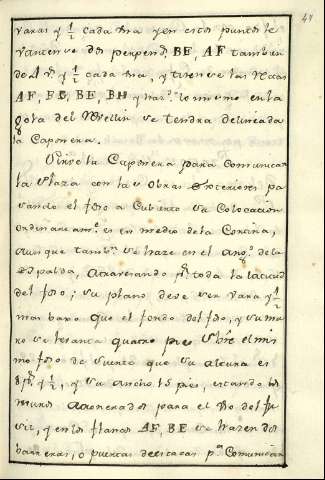 49
varas y 1/2 cada una y en estos puntos se
levanten dos perpend.s BE, AF tambien
de 1 v.a y 1/2 cada una, y tirense las rectas
AF, FE, BE, BH y haz.do lo mismo en la
gola del Revellin se tendra delineada
la Caponera.
Sirve la Caponera para comunicar
la Plaza con las Obras Exteriores pa
sando el foso a Cubierto su Colocacion
ordinariam.te es en medio de la Cortina,
aunque tamb.n se haze en el Ang.o de la
Espalda, atravesando p.r toda la latitud
del foso; su plano deve ser vara y 1/2
mas baxo que el fondo del foso, y su mu
ro se levanta quatro pies sobre el mis
mo foso de suerte que su altura es
8 p.s y 1/2, y su ancho 15 pies, estando los
muros para el uso del fu
sil, y en los flancos AF, BE se hazen dos
barreras, o puertas p.a Comunicar